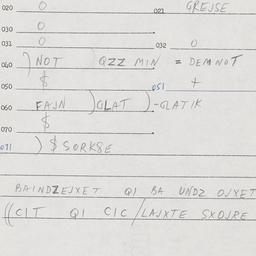 020 O 021 GREJSE
030 O
031 O 032 O
040 ) NOT QZZ MIN = DEMNOT
050 $ 051 +
060 FAJN ) GLAT ) -GLATIK
$
070
071 ) $ SORK8E
BAINDZEJXET QI BA UNDZ OJXET
((CIT QI CIC / LAJXTE SXOJRE